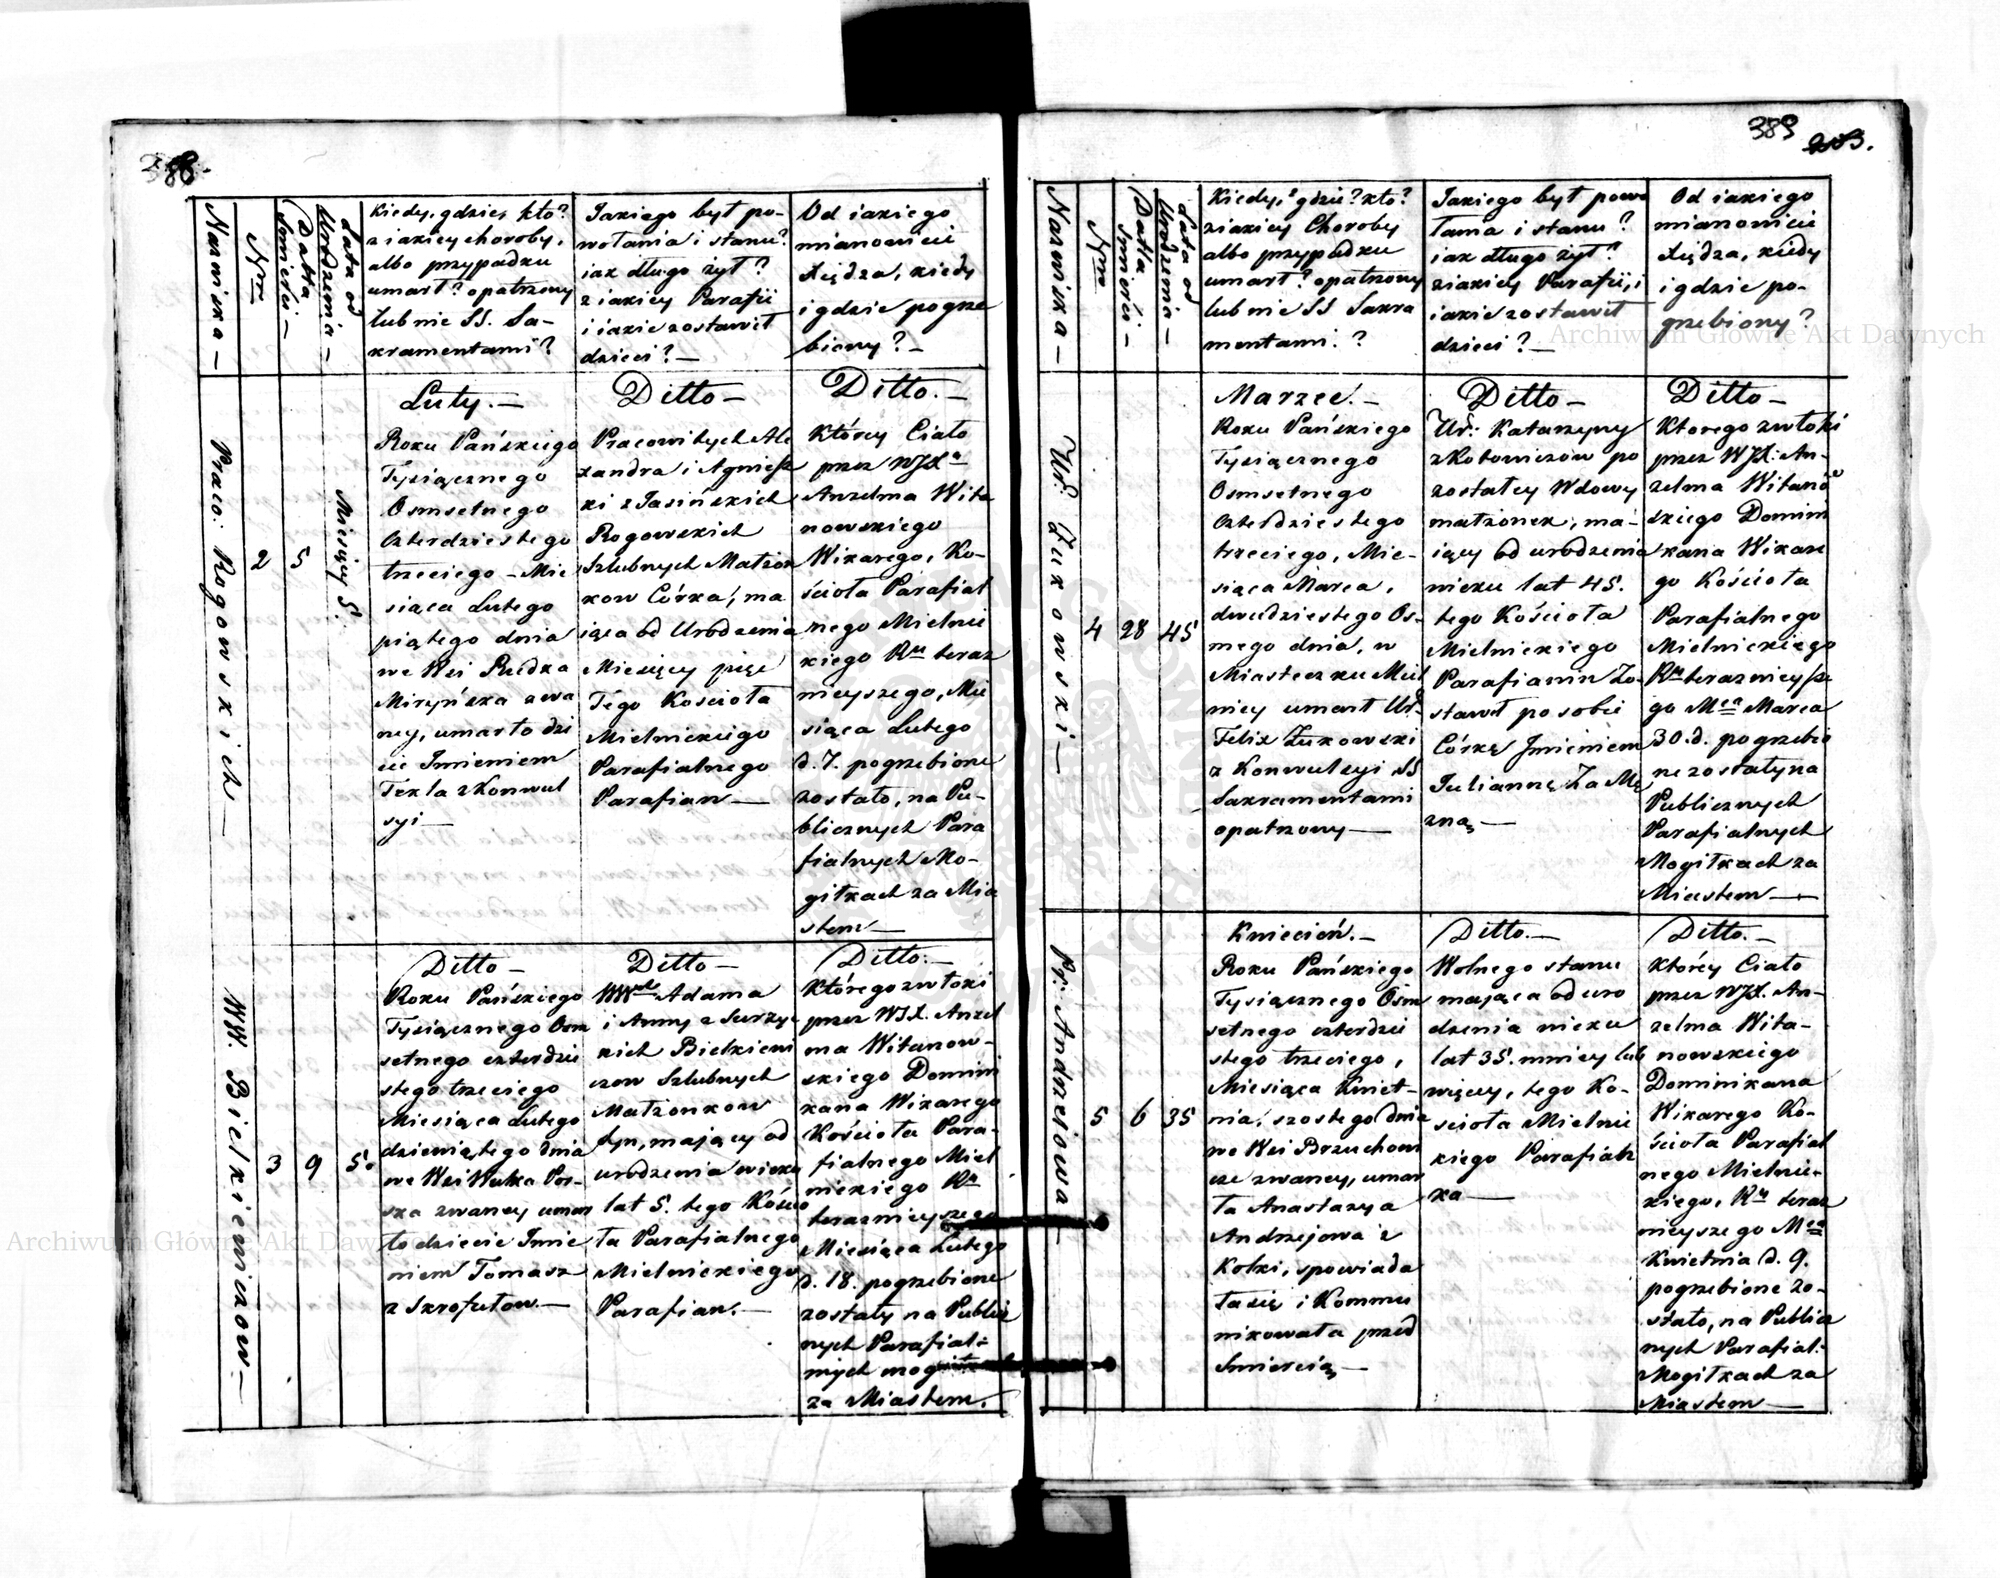 388.
Nazwiska —
Nrm
Data Smierci —
Lata od Urodzenia —
Kiedy, gdzie, kto?
z iakiey choroby,
albo przypadku
umarł? opatrzony
lub nie SS. Sa-
kramentami?
Jakiego był po-
wołania i stanu?
iak długo żył?
z iakiey Parafii
i iakie zostawił
dzieci? —
Od iakiego
mianowicie
Xiędza, kiedy
i gdzie pogrze
biony? —
Praco: Rogowskich —
2
5
Miesięcy 5.
Luty. —
Roku Pańskiego
Tysiącznego
Osmsetnego
Czterdziestego
trzeciego — Mie
siąca Lutego
piątego dnia
we Wsi Rudka
Miryńska zwa
ney, umarło dzi
cie Imieniem
Tekla z Konwul
syi —
Ditto —
Pracowitych Ale
xandra i Agniesz
ki z Jasińskich
Rogowskich
Szlubnych Małżon
kow Córka, ma
iąca od Urodzenia
Miesięcy pięć
Tego Kościoła
Mielnickiego
Parafialnego
Parafian —
Ditto. —
Którey Ciało
przez WJX.a
Anzelma Wita
nowskiego
Wikarego, Ko-
ścioła Parafial
nego Mielnic
kiego Ru teraz
nieyszego, Mie
siąca Lutego
d. 7. pogrzebione
zostało, na Pu-
blicznych Para
fialnych Mo-
giłkach za Mia
stem —
WW. Bielkiewiczow —
3
9
5.
Ditto —
Roku Pańskiego
Tysiącznego Osm
setnego czterdzie
stego trzeciego
Miesiąca Lutego
dziewiątego dnia
we Wsi Wulka Por-
ska zwaney umar
ło dziecie Imie
niem Tomasz
z Skrofułow. —
Ditto —
Adama
i Anny z Surzyc
kich Bielkiewi
czow Szlubnych
Małżonkow
Syn, mający od
urodzenia wieku
lat 5. tego Kościo
ła Parafialnego
Mielnickiego
Parafian. —
Ditto. —
Którego zwłoki
przez WJX. Anzel
ma Witanow-
skiego Domini
kana Wikarego
Kościoła Para-
fialnego Miel
nickiego Ru
teraznieyszego
Miesiąca Lutego
d. 18. pogrzebione
zostały na Public
nych Parafial=
nych mogiłkach
za Miastem.
389 203.
Nazwiska —
Nrm
Data Smierci —
Lata od Urodzenia —
Kiedy? gdzie? kto?
z iakiey Choroby
albo przypadku
umarł? opatrzony
lub nie SS Sakra
mentami. ?
Jakiego był powo
łania i stanu?
iak długo żył?
z iakiey Parafii, i
iakie zostawił
dzieci? —
Od iakiego
mianowicie
Xiędza, kiedy
i gdzie po-
grzebiony?
Ur: Żukowski —
4
28
45
Marzec. —
Roku Pańskiego
Tysiącznego
Osmsetnego
Czterdziestego
trzeciego, Mie-
siąca Marca,
dwudziestego Os-
mego dnia, w
Miasteczku Miel
nicy umarł Ur.
Felix Żukowski
z Konwulsyi SS
Sakramentami
opatrzony —
Ditto —
Ur: Katarzyny
z Kotowiczow po
zostałey Wdowy
małżonek, ma-
iący od urodzenia
wieku lat 45.
tego Kościoła
Mielnickiego
Parafianin Zo-
stawił po sobie
Córkę Jmieniem
Juliannę Za Mę
zną —
Ditto —
Ktorego zwłoki
przez WJX: An-
zelma Witano
skiego Domini
kana Wikare
go Kościoła
Parafialnego
Mielnickiego
Ru teraznieysze
go Mca Marca
30. d. pogrzebio
ne zostały na
Publicznych
Parafialnych
Mogiłkach za
Miastem —
Pr: Andrzeiowa —
5
6
35
Kwiecień. —
Roku Pańskiego
Tysiącznego Osm
setnego czterdzie
stego trzeciego,
Miesiąca Kwiet-
nia, szostego dnia
we Wsi Brzuchow
cze zwaney, umar
ła Anastazya
Andrzejowa z
Kolki, spowiada
ła się i Kommu
nikowała przed
Smiercią —
Ditto. —
Wolnego stanu
mająca od uro
dzenia wieku
lat 35. mniey lub
więcey, tego Ko-
ścioła Mielnic
kiego Parafian
ka —
Ditto. —
Którey Ciało
przez WJX. An-
zelma Wita-
nowskiego
Dominikana
Wikarego Ko-
ścioła Parafial
nego Mielnic-
kiego, Ru teraz
nieyszego Mca
Kwietnia d. 9.
pogrzebione zo-
stało, na Public
nych Parafial:
Mogiłkach za
Miastem —
Archiwum Główne Akt Dawnych
Archiwum Główne Akt Dawnych